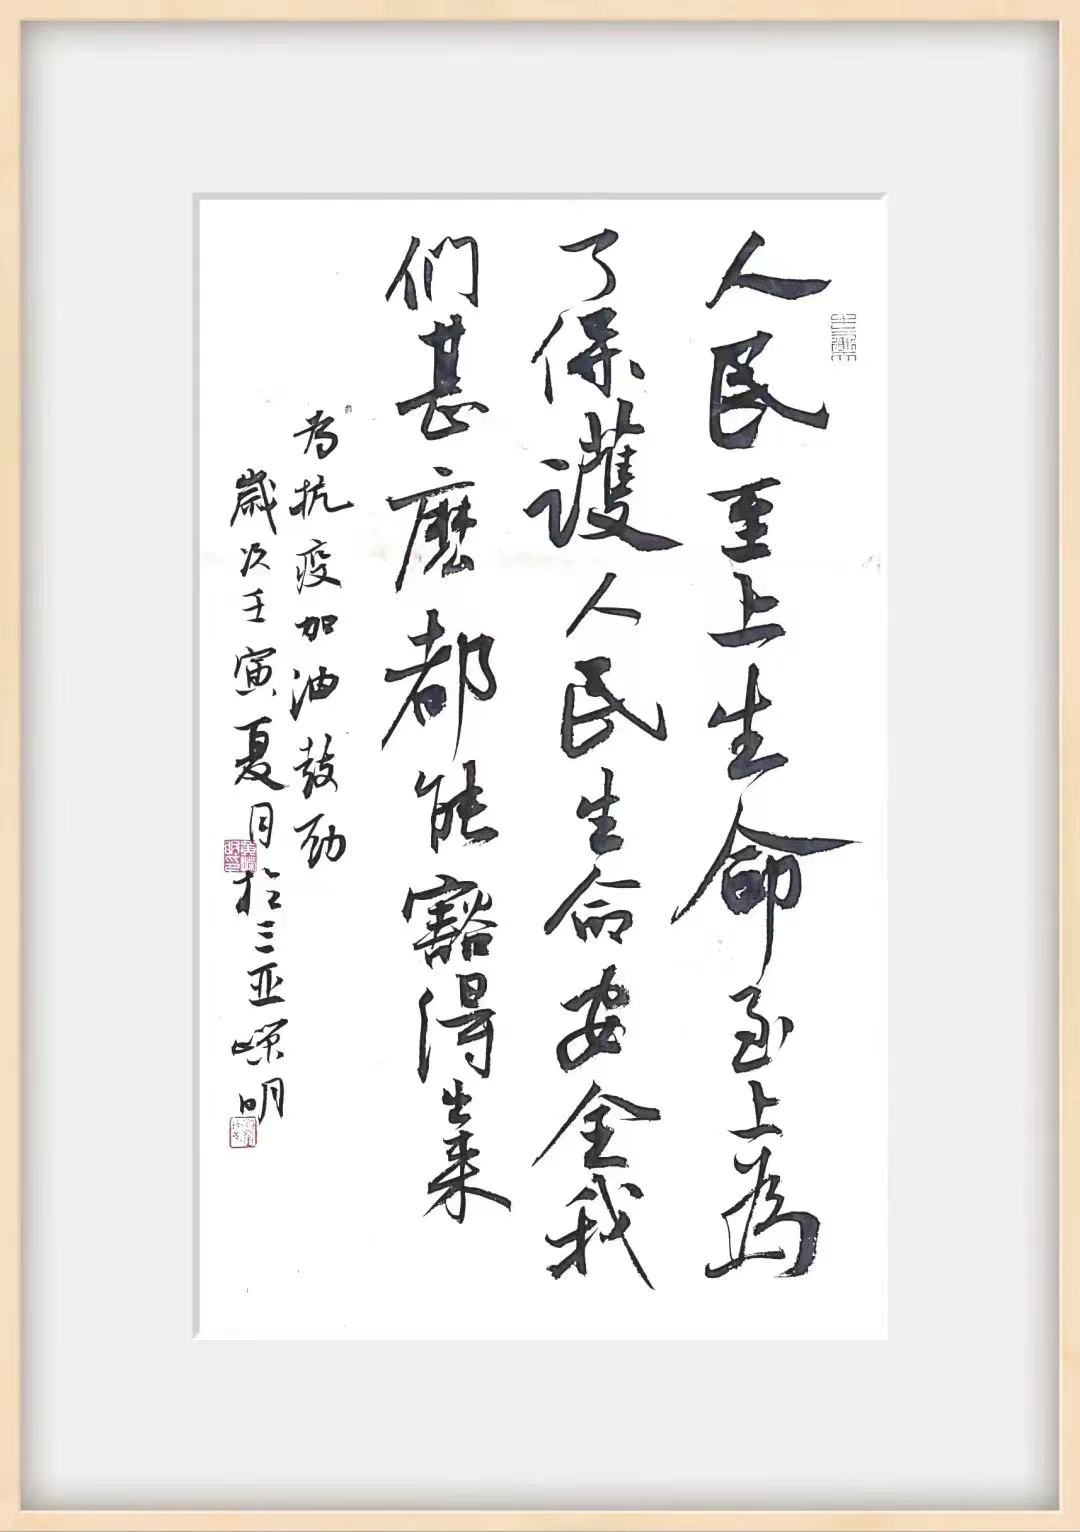 人民至上生命至上為
了保護人民生命安全我
们甚麽都能豁得出来
为抗疫加油鼓劲
歲次壬寅夏月於三亚嶸明